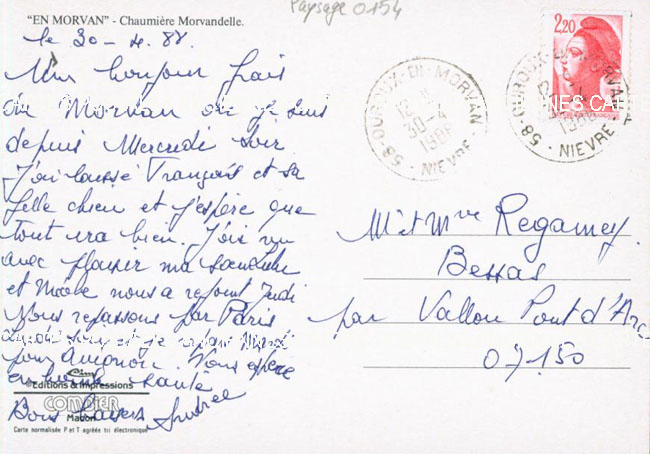 Paysage 0154
"EN MORVAN" - Chaumière Morvandelle.
le 30-4.88.
Un bonjour frais
du Morvan où je suis
depuis Mercredi soir
J'ai laissé François et sa
belle chien et j'espère que
tout ira bien. J'ai vu
avec plaisir ma
et nous a rejoint Jeudi
Nous repassons par Paris
pour Avignon. Vous espère
en bonne santé
Bons baisers Andrée
Cim
Editions & Impressions
COMBIER
Macon
Carte normalisée P et T agréée tri électronique
2,20
58 OUROUX-EN-MORVAN
12 H
30-4
1988
NIEVRE
58 OUROUX-EN-MORVAN
12 H
1988
NIEVRE
Mr et Mme Regamey
Bessas
par Vallon Pont d'Arc
07150